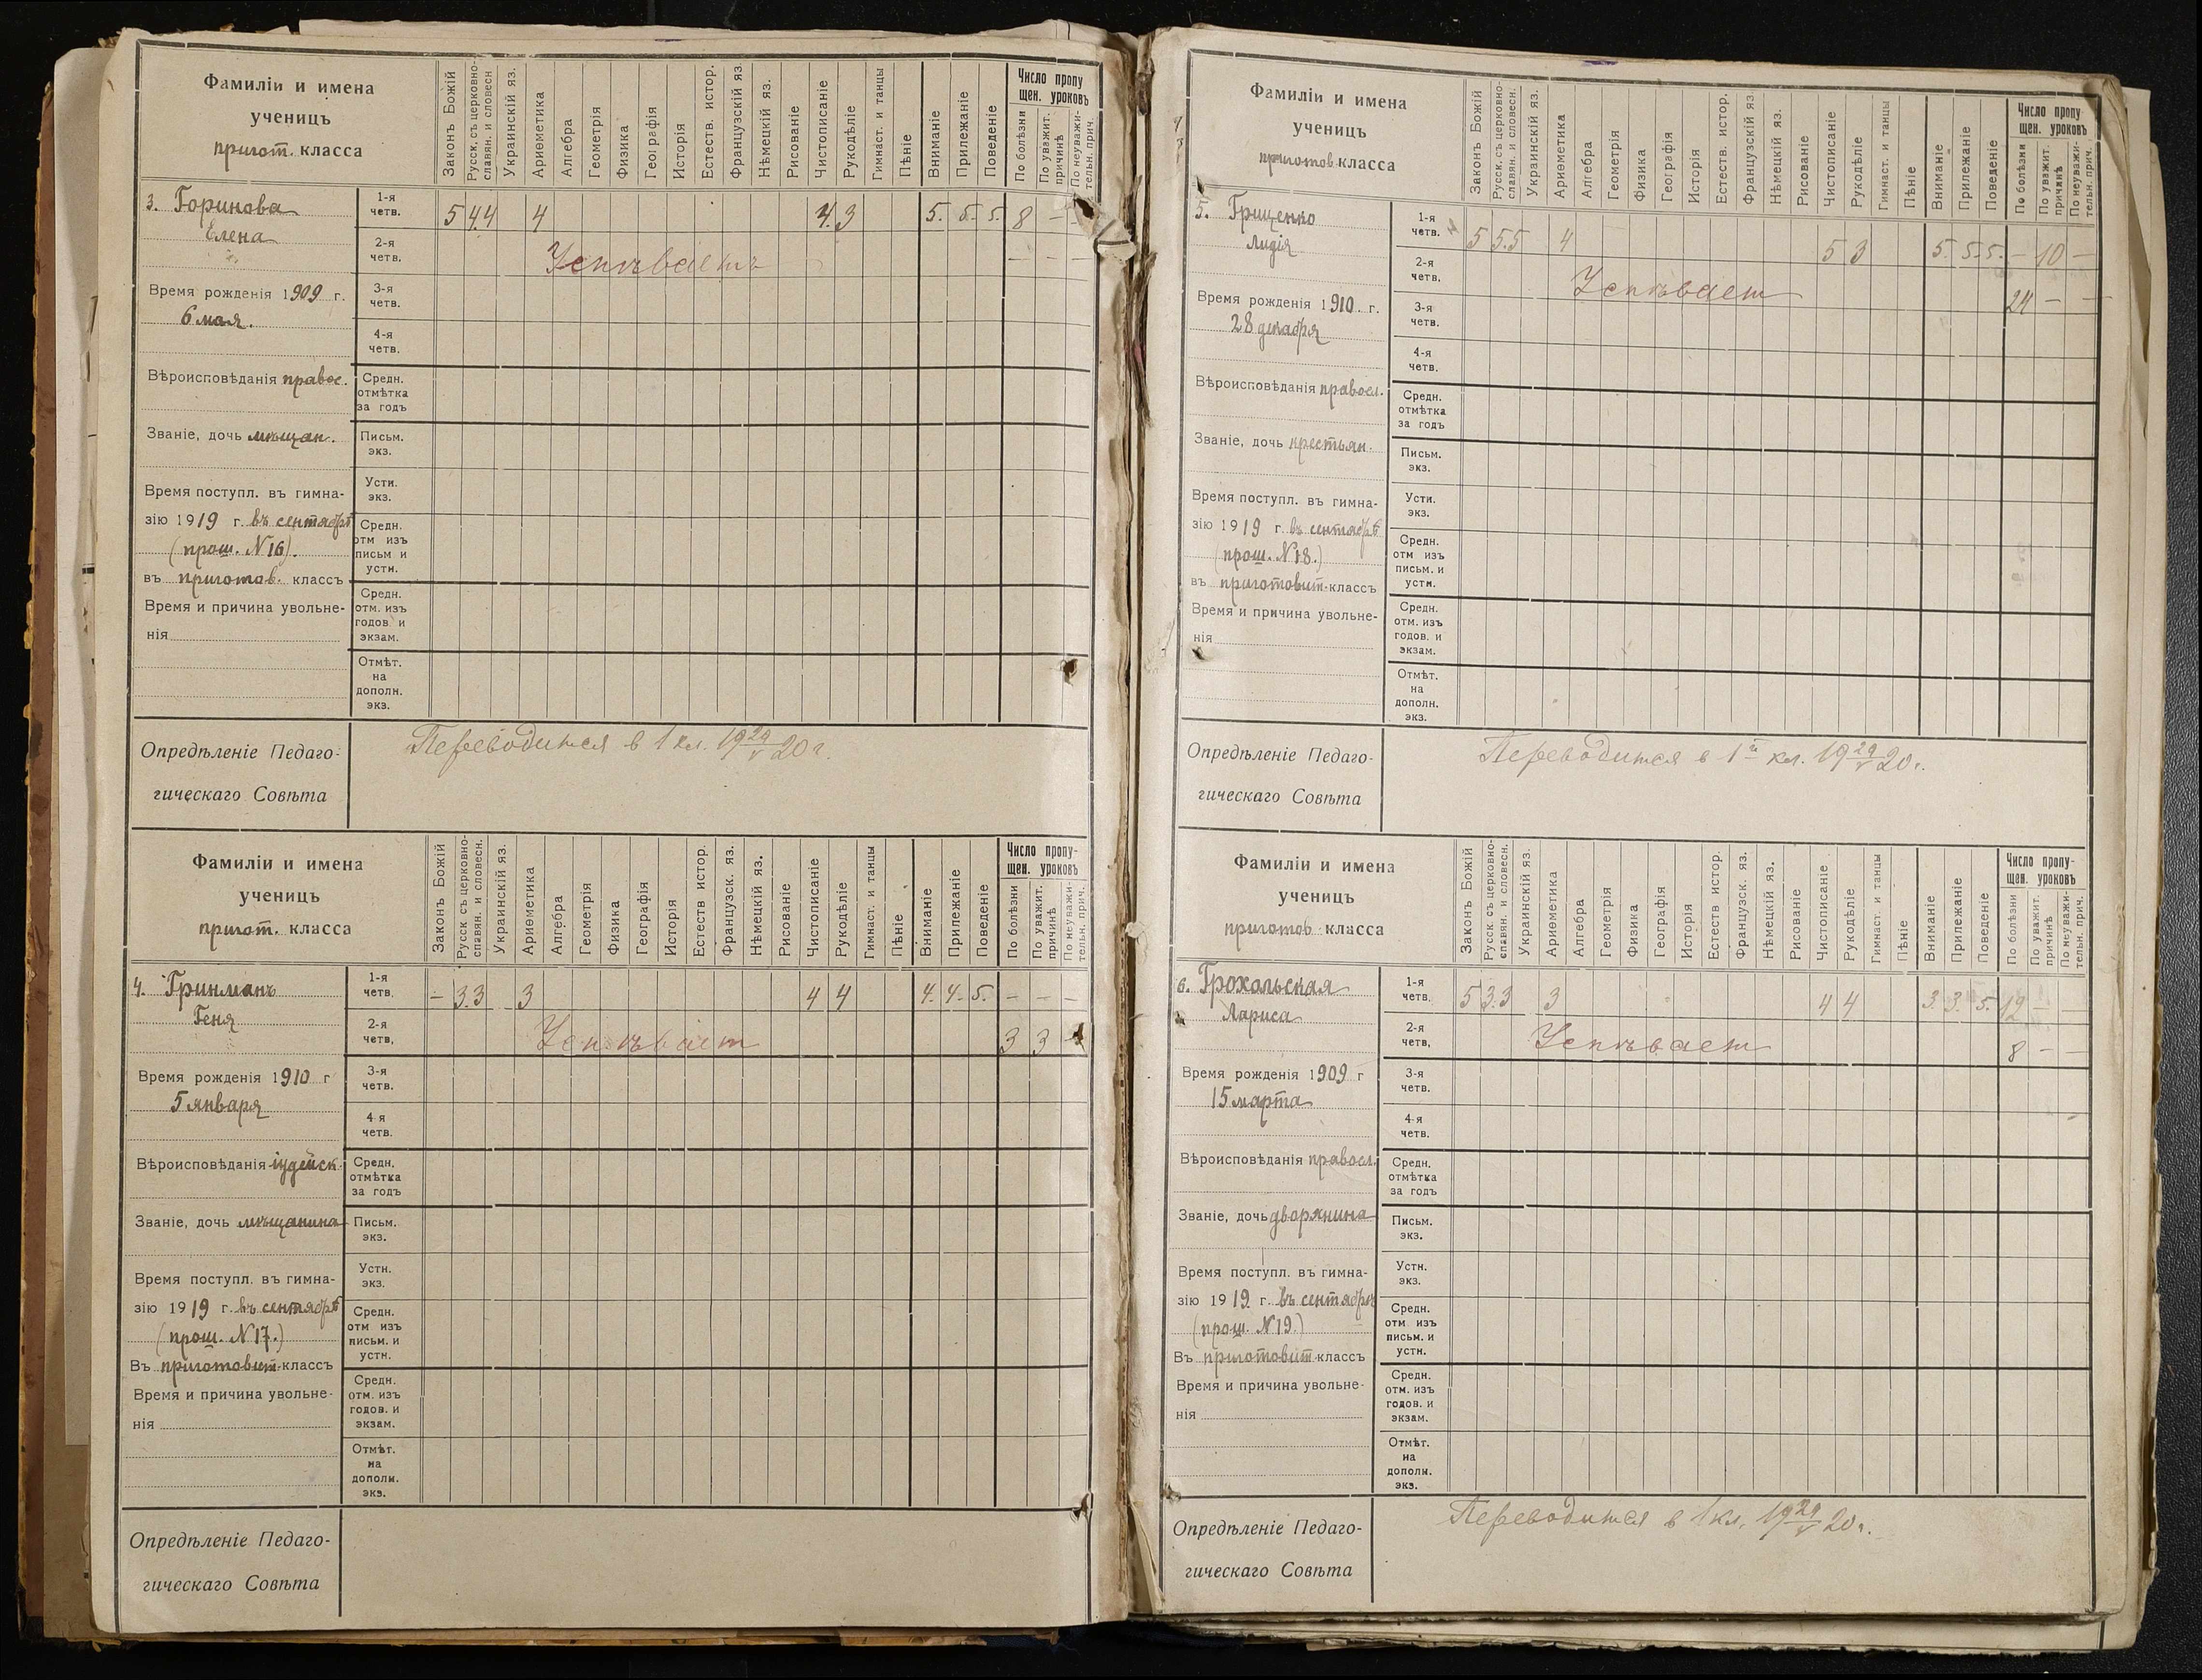 Фамиліи и имена
ученицъ
пригот. класса
Законъ Божій
Русск. съ церковно-
славян. и словесн
Украинскій яз.
Ариѳметика
Алгебра
Геометрія
Физика
Географія
Исторія
Естеств. истор.
Французскій яз.
Нѣмецкій яз.
Рисованіе
Чистописаніе
Рукодѣліе
Гимнаст. и танцы
Пѣніе
Вниманіе
Прилежаніе
Поведеніе
Число пропу
щен. уроковъ
По болѣзни
По уважит.
причинѣ
По неуважи-
тельн. прич.
3. Горинова
Елена
1-я
четв.
5 4.4 4 4. 3 5. 5. 5. 8 — —
2-я
четв.
Успѣваетъ — — —
Время рожденія 1909 г.
6 мая.
3-я
четв.
4-я
четв.
Вѣроисповѣданія правос.
Средн.
отмѣтка
за годъ
Званіе, дочь мѣщан.
Письм.
экз.
Время поступл. въ гимна-
зію 1919 г. въ сентябрѣ
(прош. N 16).
въ приготов. классъ
Устн.
экз.
Средн.
отм изъ
письм и
устн.
Время и причина увольне-
нія
Средн.
отм. изъ
годов. и
экзам.
Отмѣт.
на
дополн.
экз.
Опредѣленіе Педаго-
гическаго Совѣта
Переводится в 1 кл. 19 29/V 20 г.
Фамиліи и имена
ученицъ
пригот. класса
Законъ Божій
Русск съ церковно-
славян. и словесн.
Украинскій яз.
Ариѳметика
Алгебра
Геометрія
Физика
Географія
Исторія
Естеств истор.
Французск. яз.
Нѣмецкій яз.
Рисованіе
Чистописаніе
Рукодѣліе
Гимнаст. и танцы
Пѣніе
Вниманіе
Прилежаніе
Поведеніе
Число пропу-
щен. уроковъ
По болѣзни
По уважит.
причинѣ
По неуважи-
тельн. прич.
4. Гринманъ
Геня
1-я
четв.
— 3.3 3 4 4 4. 4. 5. — — —
2-я
четв,
Успѣваетъ 3 3
Время рожденія 1910 г
5 января
3-я
четв.
4 я
четв.
Вѣроисповѣданія іудейск.
Средн.
отмѣтка
за годъ
Званіе, дочь мѣщанина
Письм.
экз.
Время поступл. въ гимна-
зію 1919 г. въ сентябрѣ
(прош. N 17.)
Въ приготовит. классъ
Устн.
экз.
Средн.
отм изъ
письм. и
устн.
Время и причина увольне-
нія
Средн.
отм. изъ
годов. и
экзам.
Отмѣт.
на
дополн.
экз.
Опредѣленіе Педаго-
гическаго Совѣта
Фамиліи и имена
ученицъ
приготов. класса
Законъ Божій
Русск. съ церковно-
славян. и словесн.
Украинскій яз.
Ариѳметика
Алгебра
Геометрія
Физика
Географія
Исторія
Естеств. истор.
Французскій яз.
Нѣмецкій яз.
Рисованіе
Чистописаніе
Рукодѣліе
Гимнаст. и танцы
Пѣніе
Вниманіе
Прилежаніе
Поведеніе
Число пропу
щен. уроковъ
По болѣзни
По уважит.
причинѣ
По неуважи-
тельн. прич.
5. Гриценко
Лидія
1-я
четв.
5 5.5 4 5 3 5. 5. 5. — 10 —
2-я
четв.
Успѣваетъ 24 — —
Время рожденія 1910 г.
28 декабря
3-я
четв.
4-я
четв.
Вѣроисповѣданія правосл.
Средн.
отмѣтка
за годъ
Званіе, дочь крестьян.
Письм.
экз.
Время поступл. въ гимна-
зію 1919 г въ сентябрѣ
(прош. N 18.)
въ приготовит. классъ
Устн.
экз.
Средн.
отм изъ
письм. и
устн.
Время и причина увольне-
нія
Средн.
отм. изъ
годов. и
экзам.
Отмѣт.
на
дополн.
экз.
Опредѣленіе Педаго-
гическаго Совѣта
Переводится в 1й кл. 19 29/V 20 г.
Фамиліи и имена
ученицъ
приготов. класса
Законъ Божій
Русск. съ церковно-
славян. и словесн.
Украинскій яз.
Ариѳметика
Алгебра
Геометрія
Физика
Географія
Исторія
Естеств истор.
Французск. яз.
Нѣмецкій яз.
Рисованіе
Чистописаніе
Рукодѣліе
Гимнаст. и танцы
Пѣніе
Вниманіе
Прилежаніе
Поведеніе
Число пропу-
щен. уроковъ
По болѣзни
По уважит.
причинѣ
По неуважи-
тельн. прич.
6. Грохольская
Лариса
1-я
четв.
5 3.3 3 4 4 3. 3. 5. 12 — —
2-я
четв,
Успѣваетъ 8 — —
Время рожденія 1909 г
15 марта
3-я
четв.
4-я
четв.
Вѣроисповѣданія правосл.
Средн.
отмѣтка
за годъ
Званіе, дочь дворянина
Письм.
экз.
Время поступл. въ гимна-
зію 1919 г. въ сентябрѣ
(прош. N 19.)
Въ приготовит. классъ
Устн.
экз.
Средн.
отм изъ
письм. и
устн.
Время и причина увольне-
нія
Средн.
отм. изъ
годов. и
экзам.
Отмѣт.
на
дополн.
экз.
Опредѣленіе Педаго-
гическаго Совѣта
Переводится в 1 кл. 19 29/V 20 г.